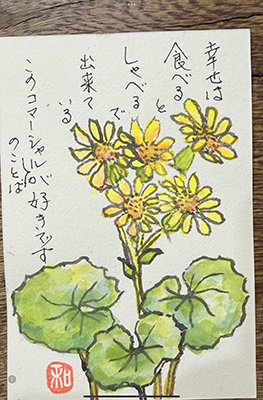 幸せは
食べると
しゃべるで
出来て
いる
このコマーシャルが好きです
のことば
和